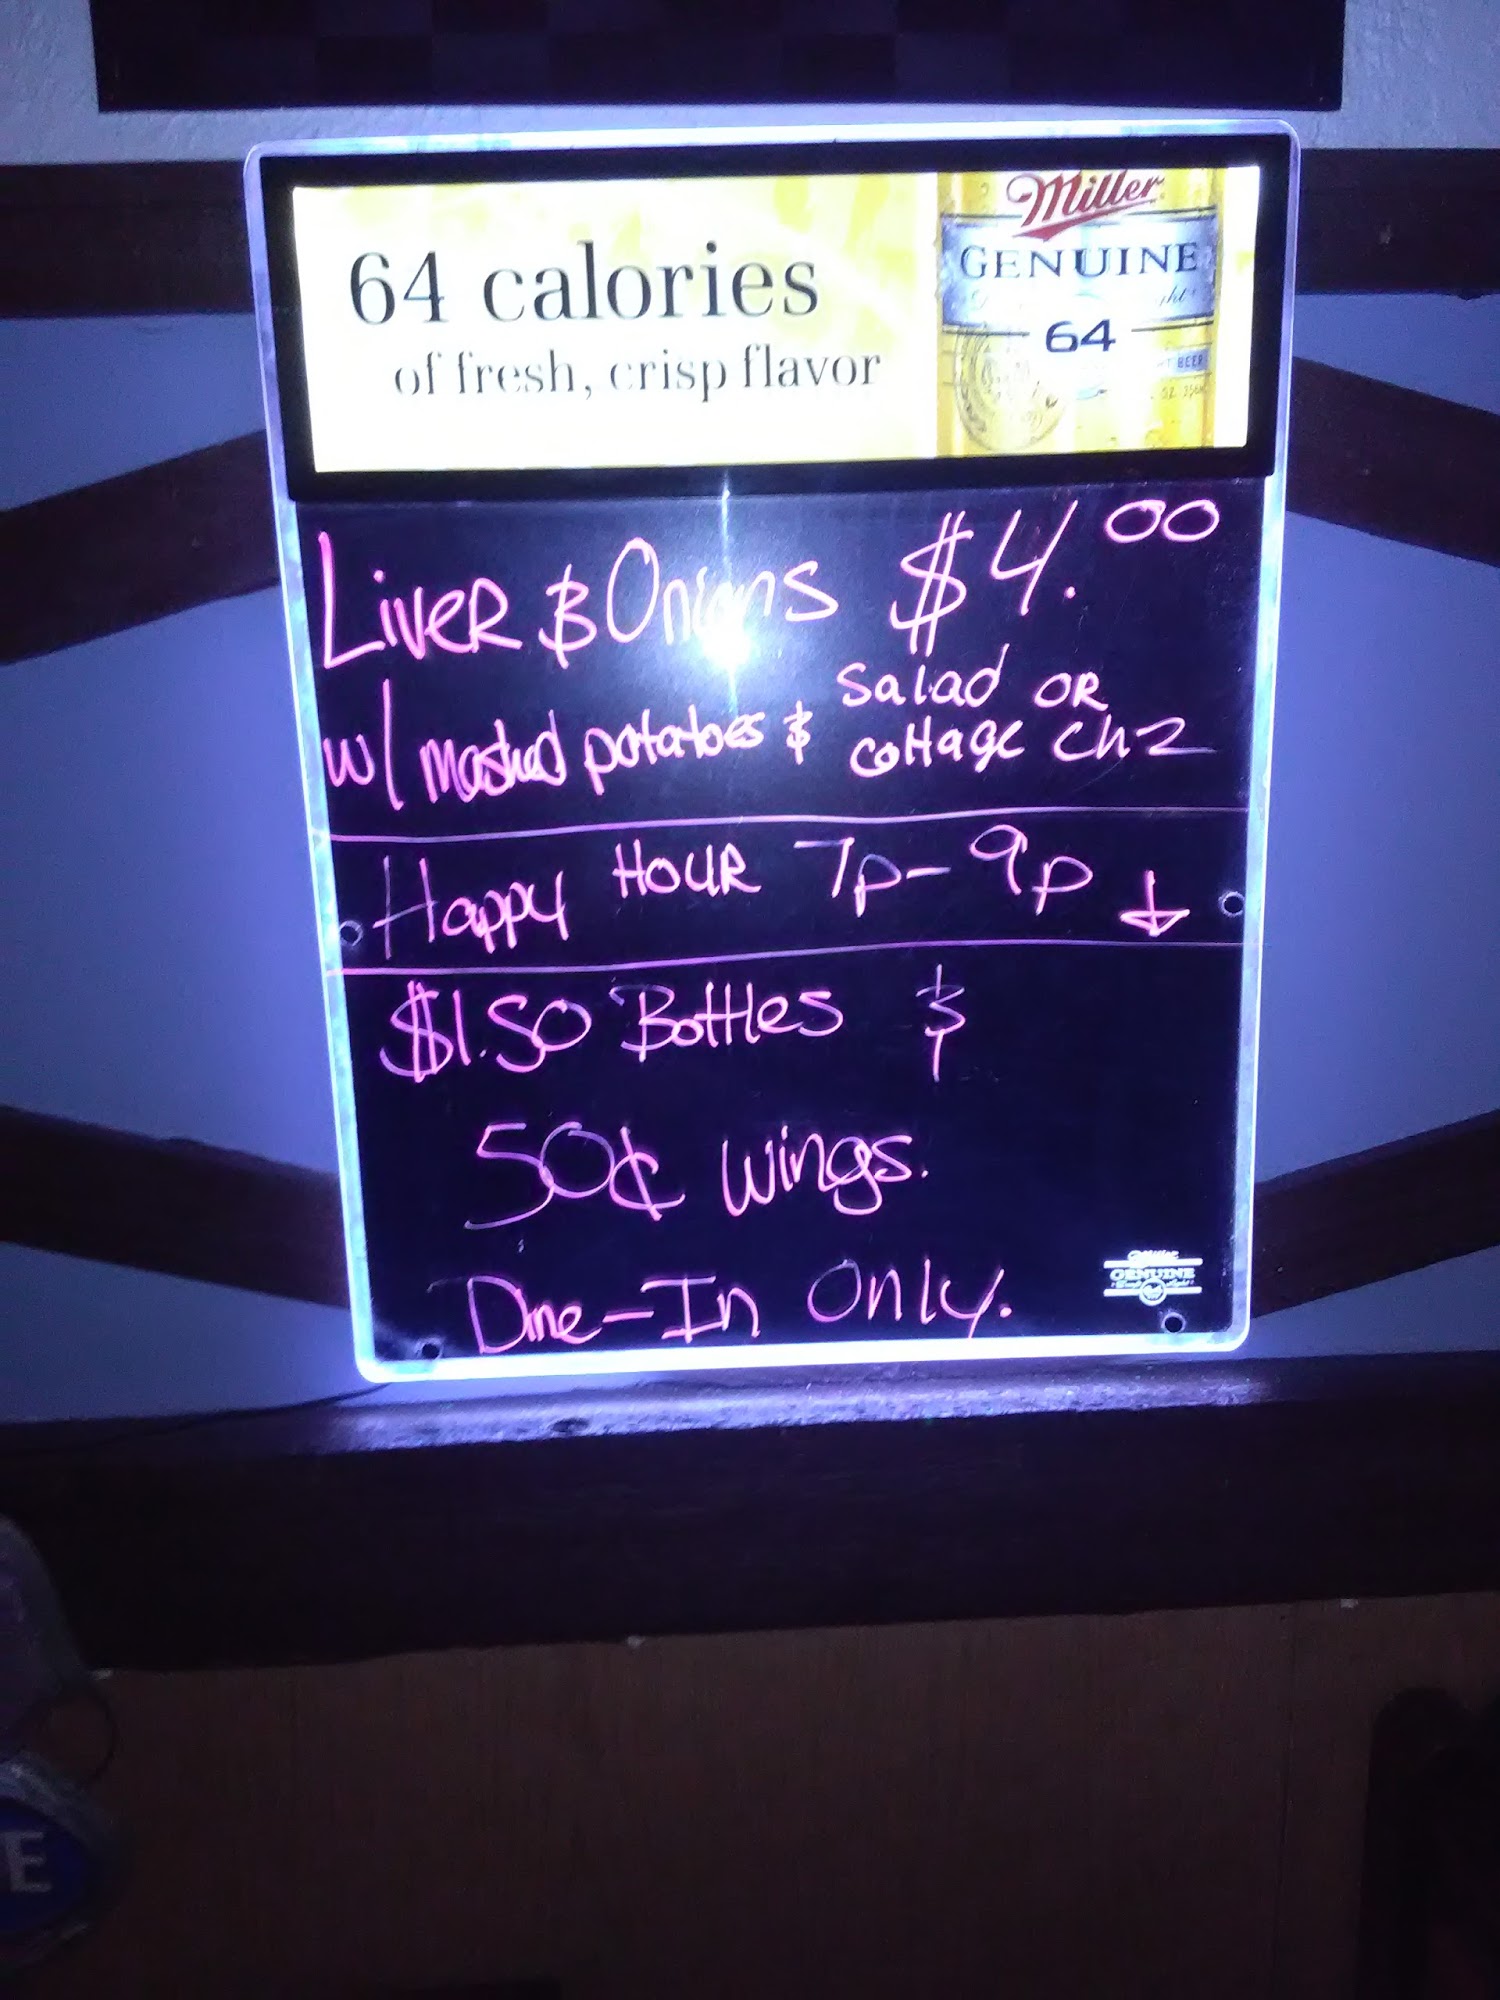 Miller
GENUINE
64
BEER
64 calories
of fresh, crisp flavor
Liver & Onions $4.00
w/ mashed potatoes & Salad or
cottage chz
Happy Hour 7p-9p ↓
$1.50 Bottles &
50¢ wings.
Dine-In Only.
Miller
GENUINE
E